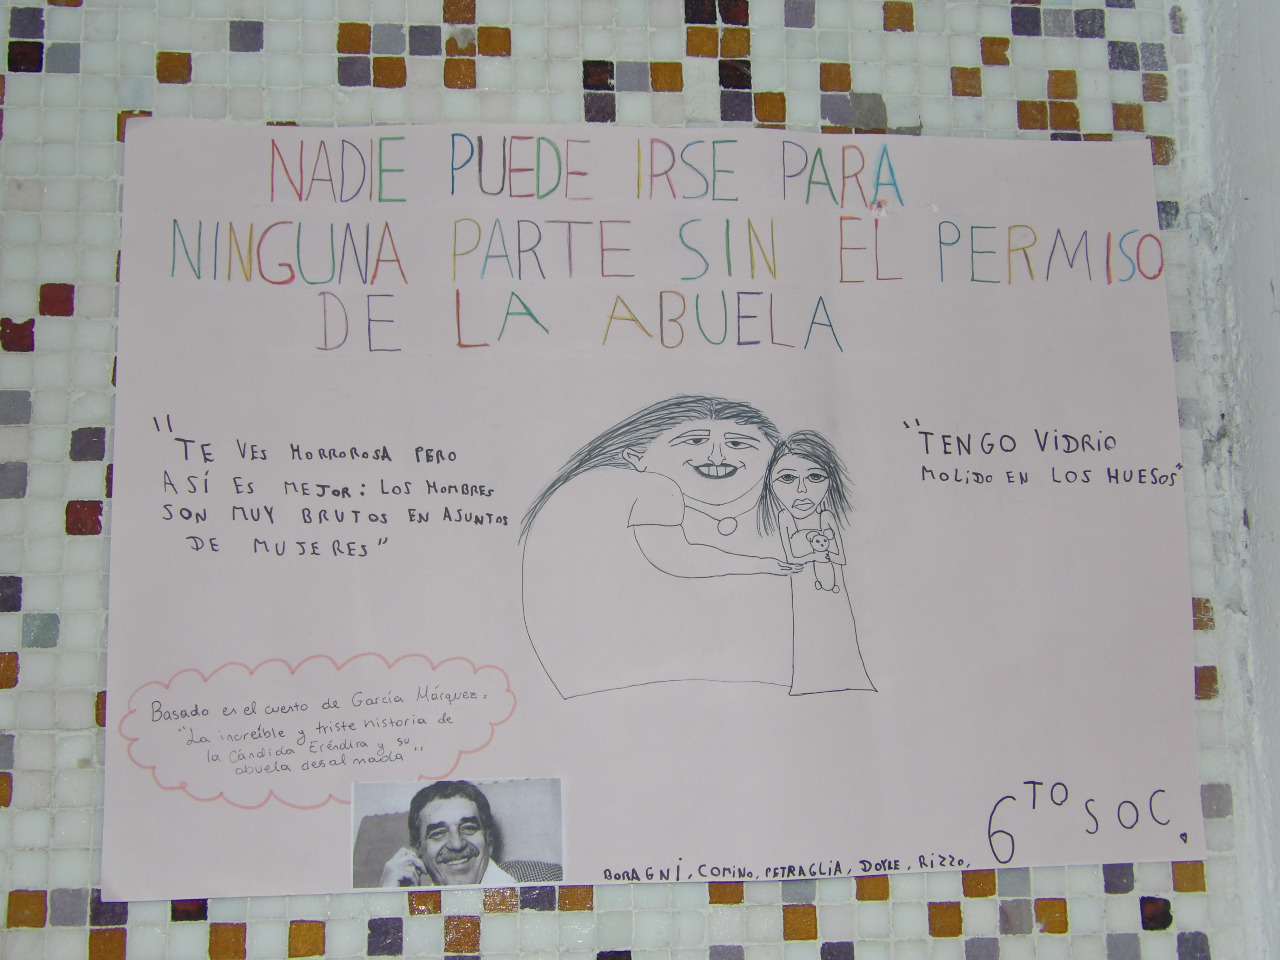 NADIE PUEDE IRSE PARA
NINGUNA PARTE SIN EL PERMISO
DE LA ABUELA
"TE VES HORROROSA PERO
ASÍ ES MEJOR: LOS HOMBRES
SON MUY BRUTOS EN ASUNTOS
DE MUJERES"
"TENGO VIDRIO
MOLIDO EN LOS HUESOS"
Basado en el cuento de García Márquez:
"La increíble y triste historia de
la Cándida Eréndira y su
abuela desalmada"
BORAGNI, COMINO, PETRAGLIA, DOYLE, RIZZO,
6TO SOC.